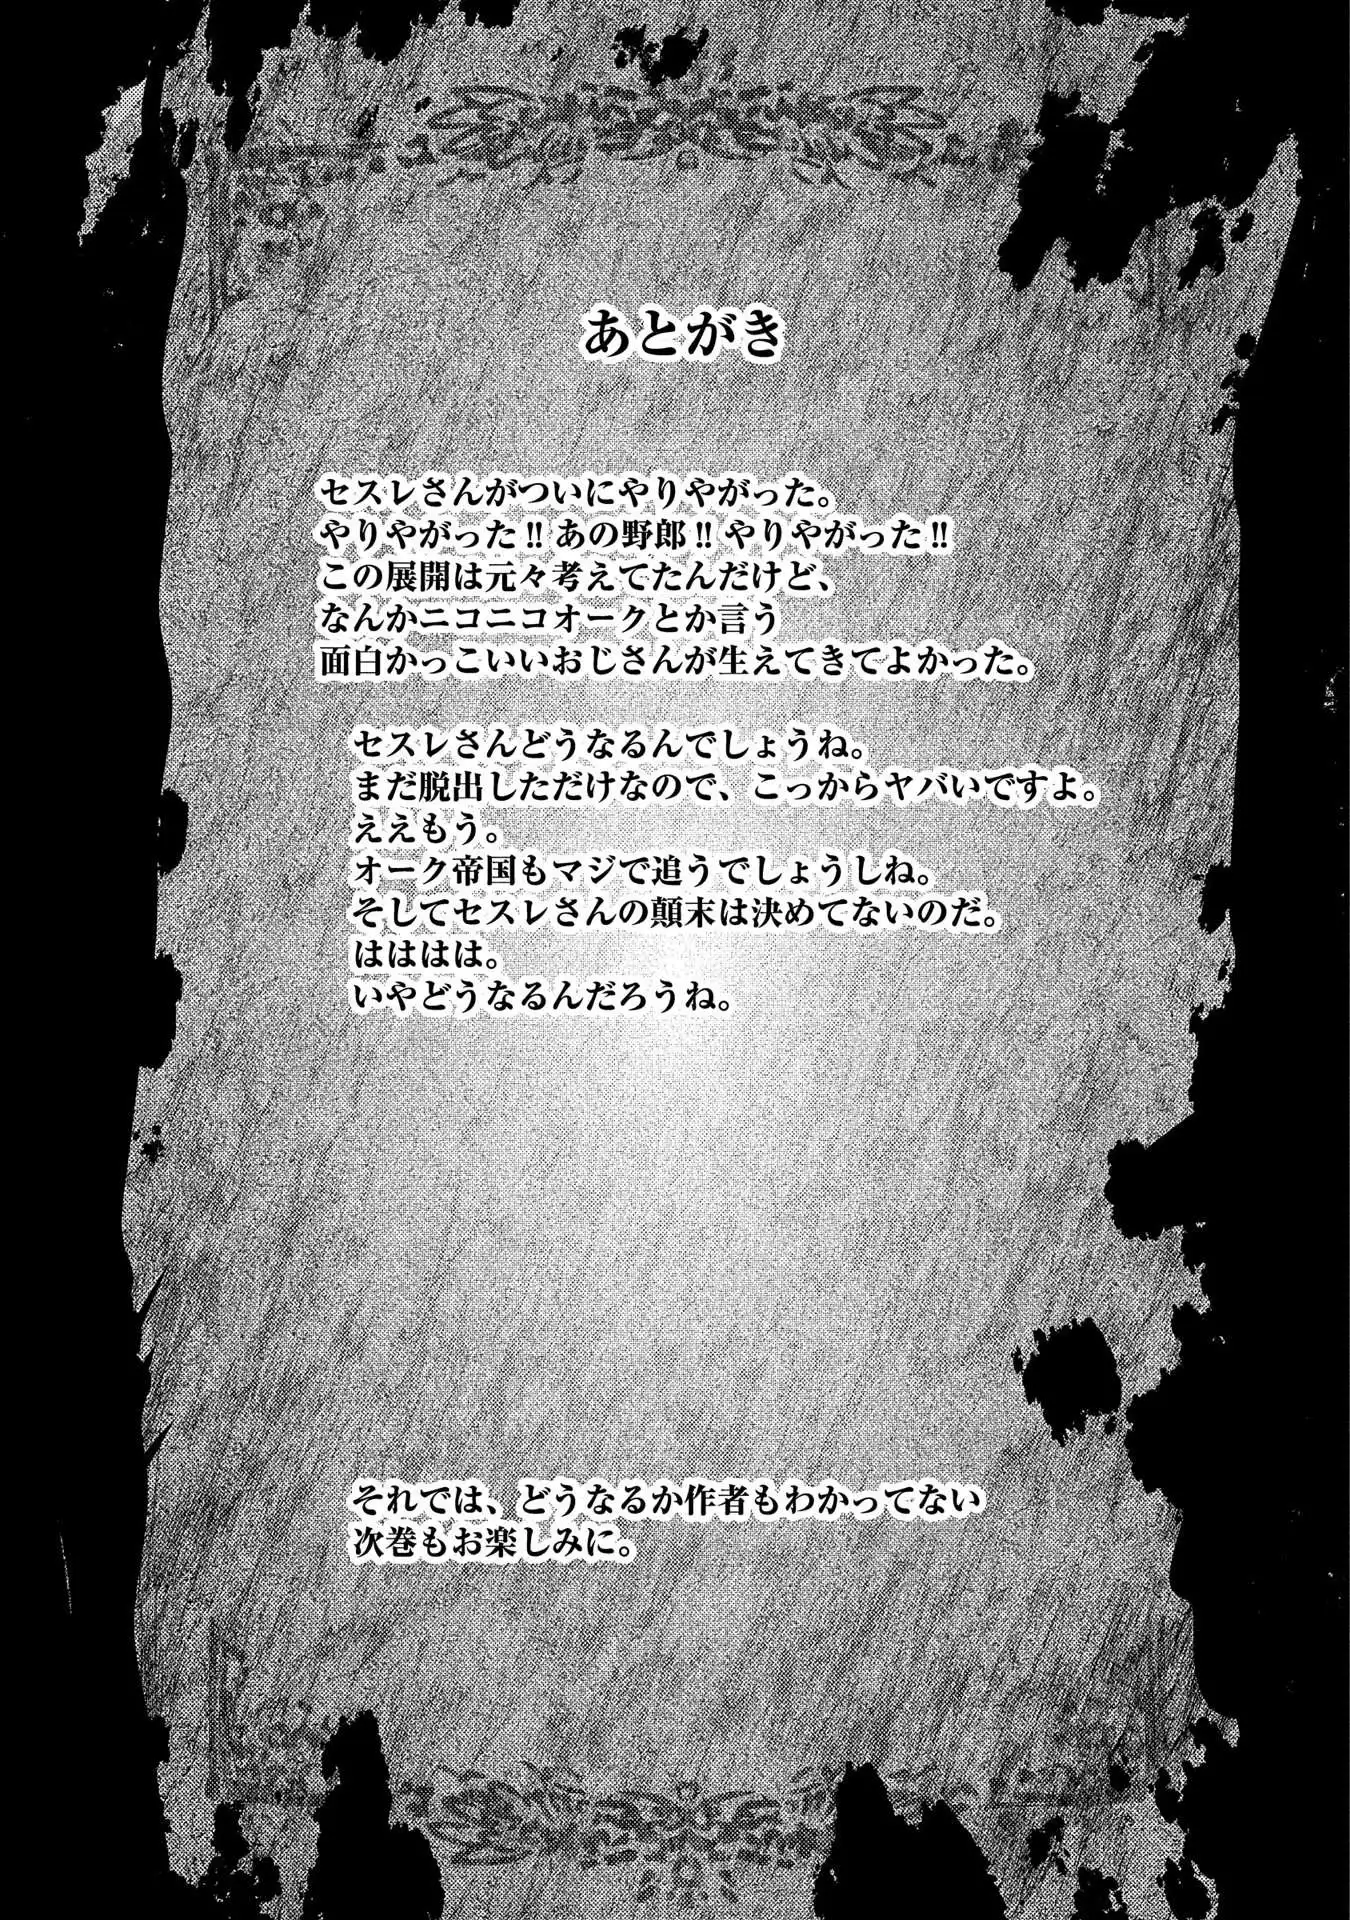 あとがき
セスレさんがついにやりやがった。
やりやがった!!あの野郎!!やりやがった!!
この展開は元々考えてたんだけど、
なんかニコニコオークとか言う
面白かっこいいおじさんが生えてきてよかった。
セスレさんどうなるんでしょうね。
まだ脱出しただけなので、こっからヤバいですよ。
ええもう。
オーク帝国もマジで追うでしょうしね。
そしてセスレさんの顛末は決めてないのだ。
はははは。
いやどうなるんだろうね。
それでは、どうなるか作者もわかってない
次巻もお楽しみに。